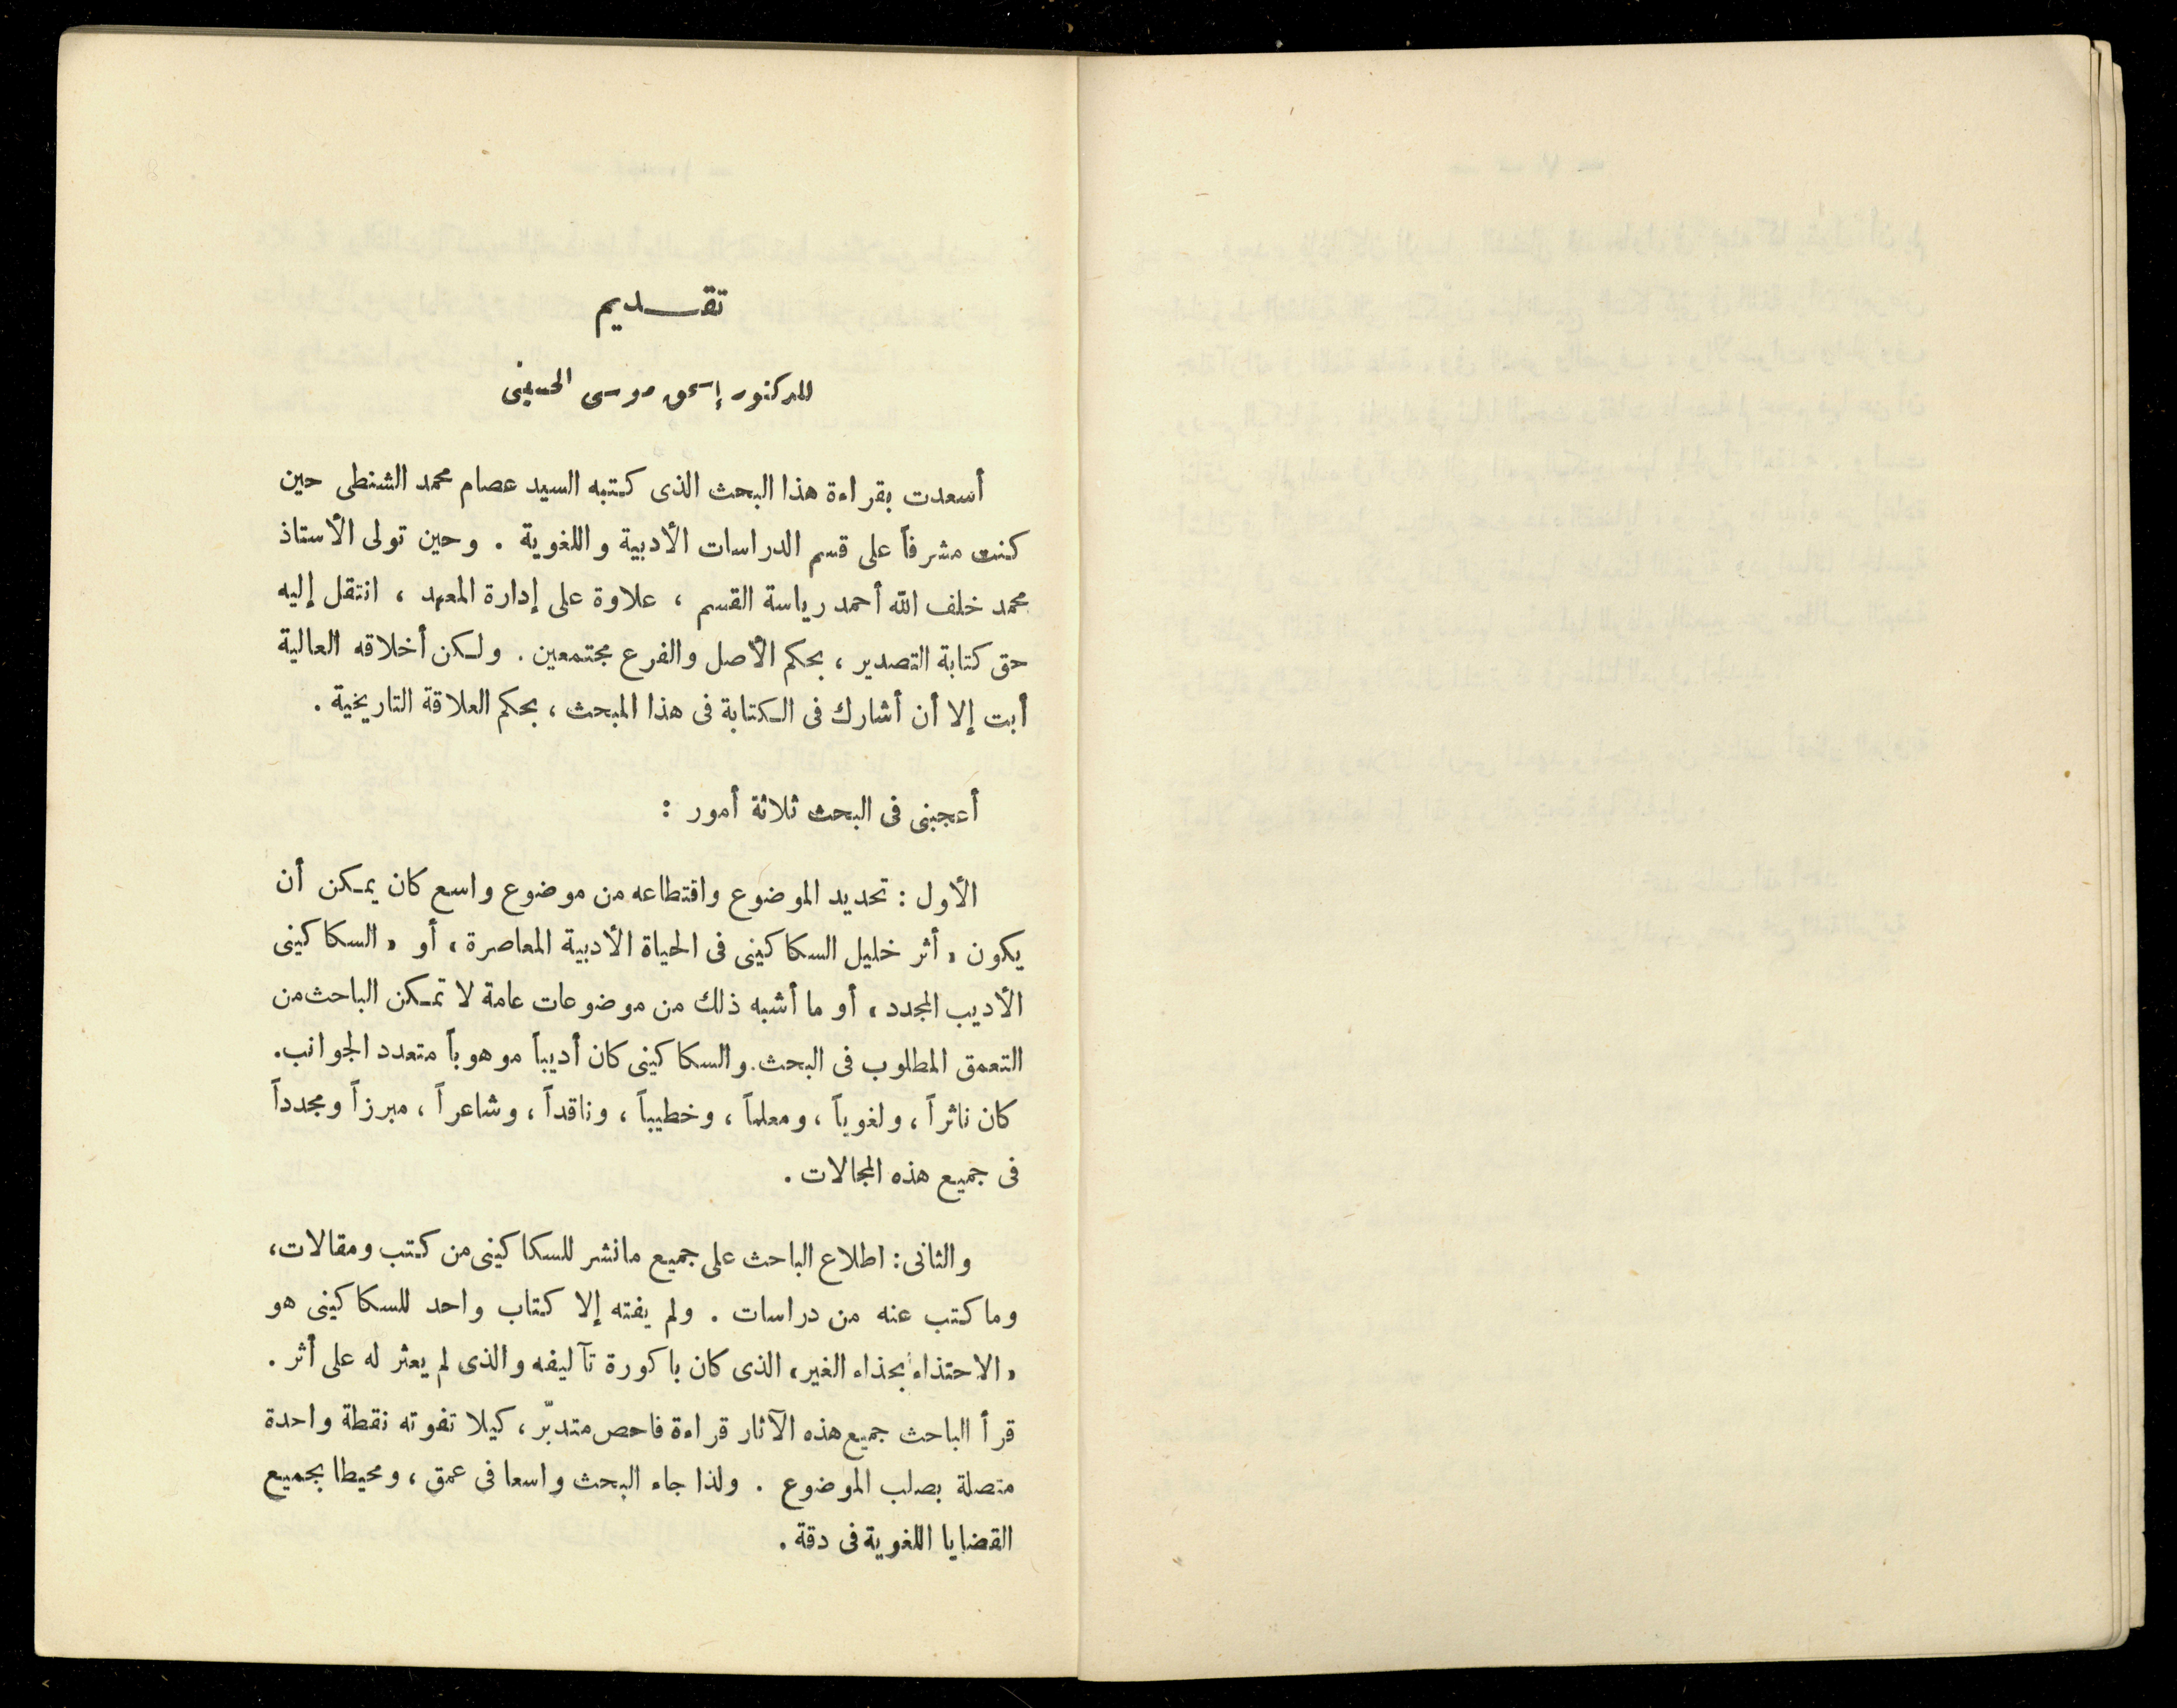 تقـــديم
للدكتور إسحق موسى الحسينى
أسعدت بقراءة هذا البحث الذى كتبه السيد عصام محمد الشنطى حين
كنت مشرفاً على قسم الدراسات الأدبية واللغوية . وحين تولى الأستاذ
محمد خلف الله أحمد رياسة القسم ، علاوة على إدارة المعهد ، انتقل إليه
حق كتابة التصدير ، بحكم الأصل والفرع مجتمعين . ولكن أخلاقه العالية
أبت إلا أن أشارك فى الكتابة فى هذا المبحث ، بحكم العلاقة التاريخية .
أعجبنى فى البحث ثلاثة أمور :
الأول : تحديد الموضوع واقتطاعه من موضوع واسع كان يمكن أن
يكون « أثر خليل السكاكينى فى الحياة الأدبية المعاصرة » أو « السكاكينى
الأديب المجدد » أو ما أشبه ذلك من موضوعات عامة لا تمكن الباحث من
التعمق المطلوب فى البحث . والسكاكينى كان أديباً موهوباً متعدد الجوانب .
كان ناثراً ، ولغوياً ، ومعلماً ، وخطيباً ، وناقداً ، وشاعراً ، مبرزاً ومجدداً
فى جميع هذه المجالات .
والثانى : اطلاع الباحث على جميع مانشر للسكاكينى من كتب ومقالات ،
وما كتب عنه من دراسات . ولم يفته إلا كتاب واحد للسكاكينى هو
« الاحتذاء بحذاء الغير » الذى كان باكورة تآليفه والذى لم يعثر له على أثر .
قرأ الباحث جميع هذه الآثار قراءة فاحص متدبّر ، كيلا تفوته نقطة واحدة
متصلة بصلب الموضوع . ولذا جاء البحث واسعا فى عمق ، ومحيطا بجميع
القضايا اللغوية فى دقة .